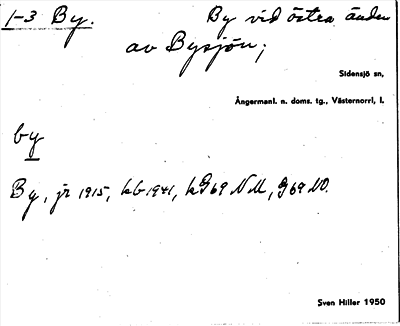 1-3 By. By vid östra änden
av Bysjön;
Sidensjö sn,
Ångermanl. n. doms. tg., Västernorrl, l.
by
By, jr 1915, kb 1941, kG69 NM, G69 NO.
Sven Hiller 1950